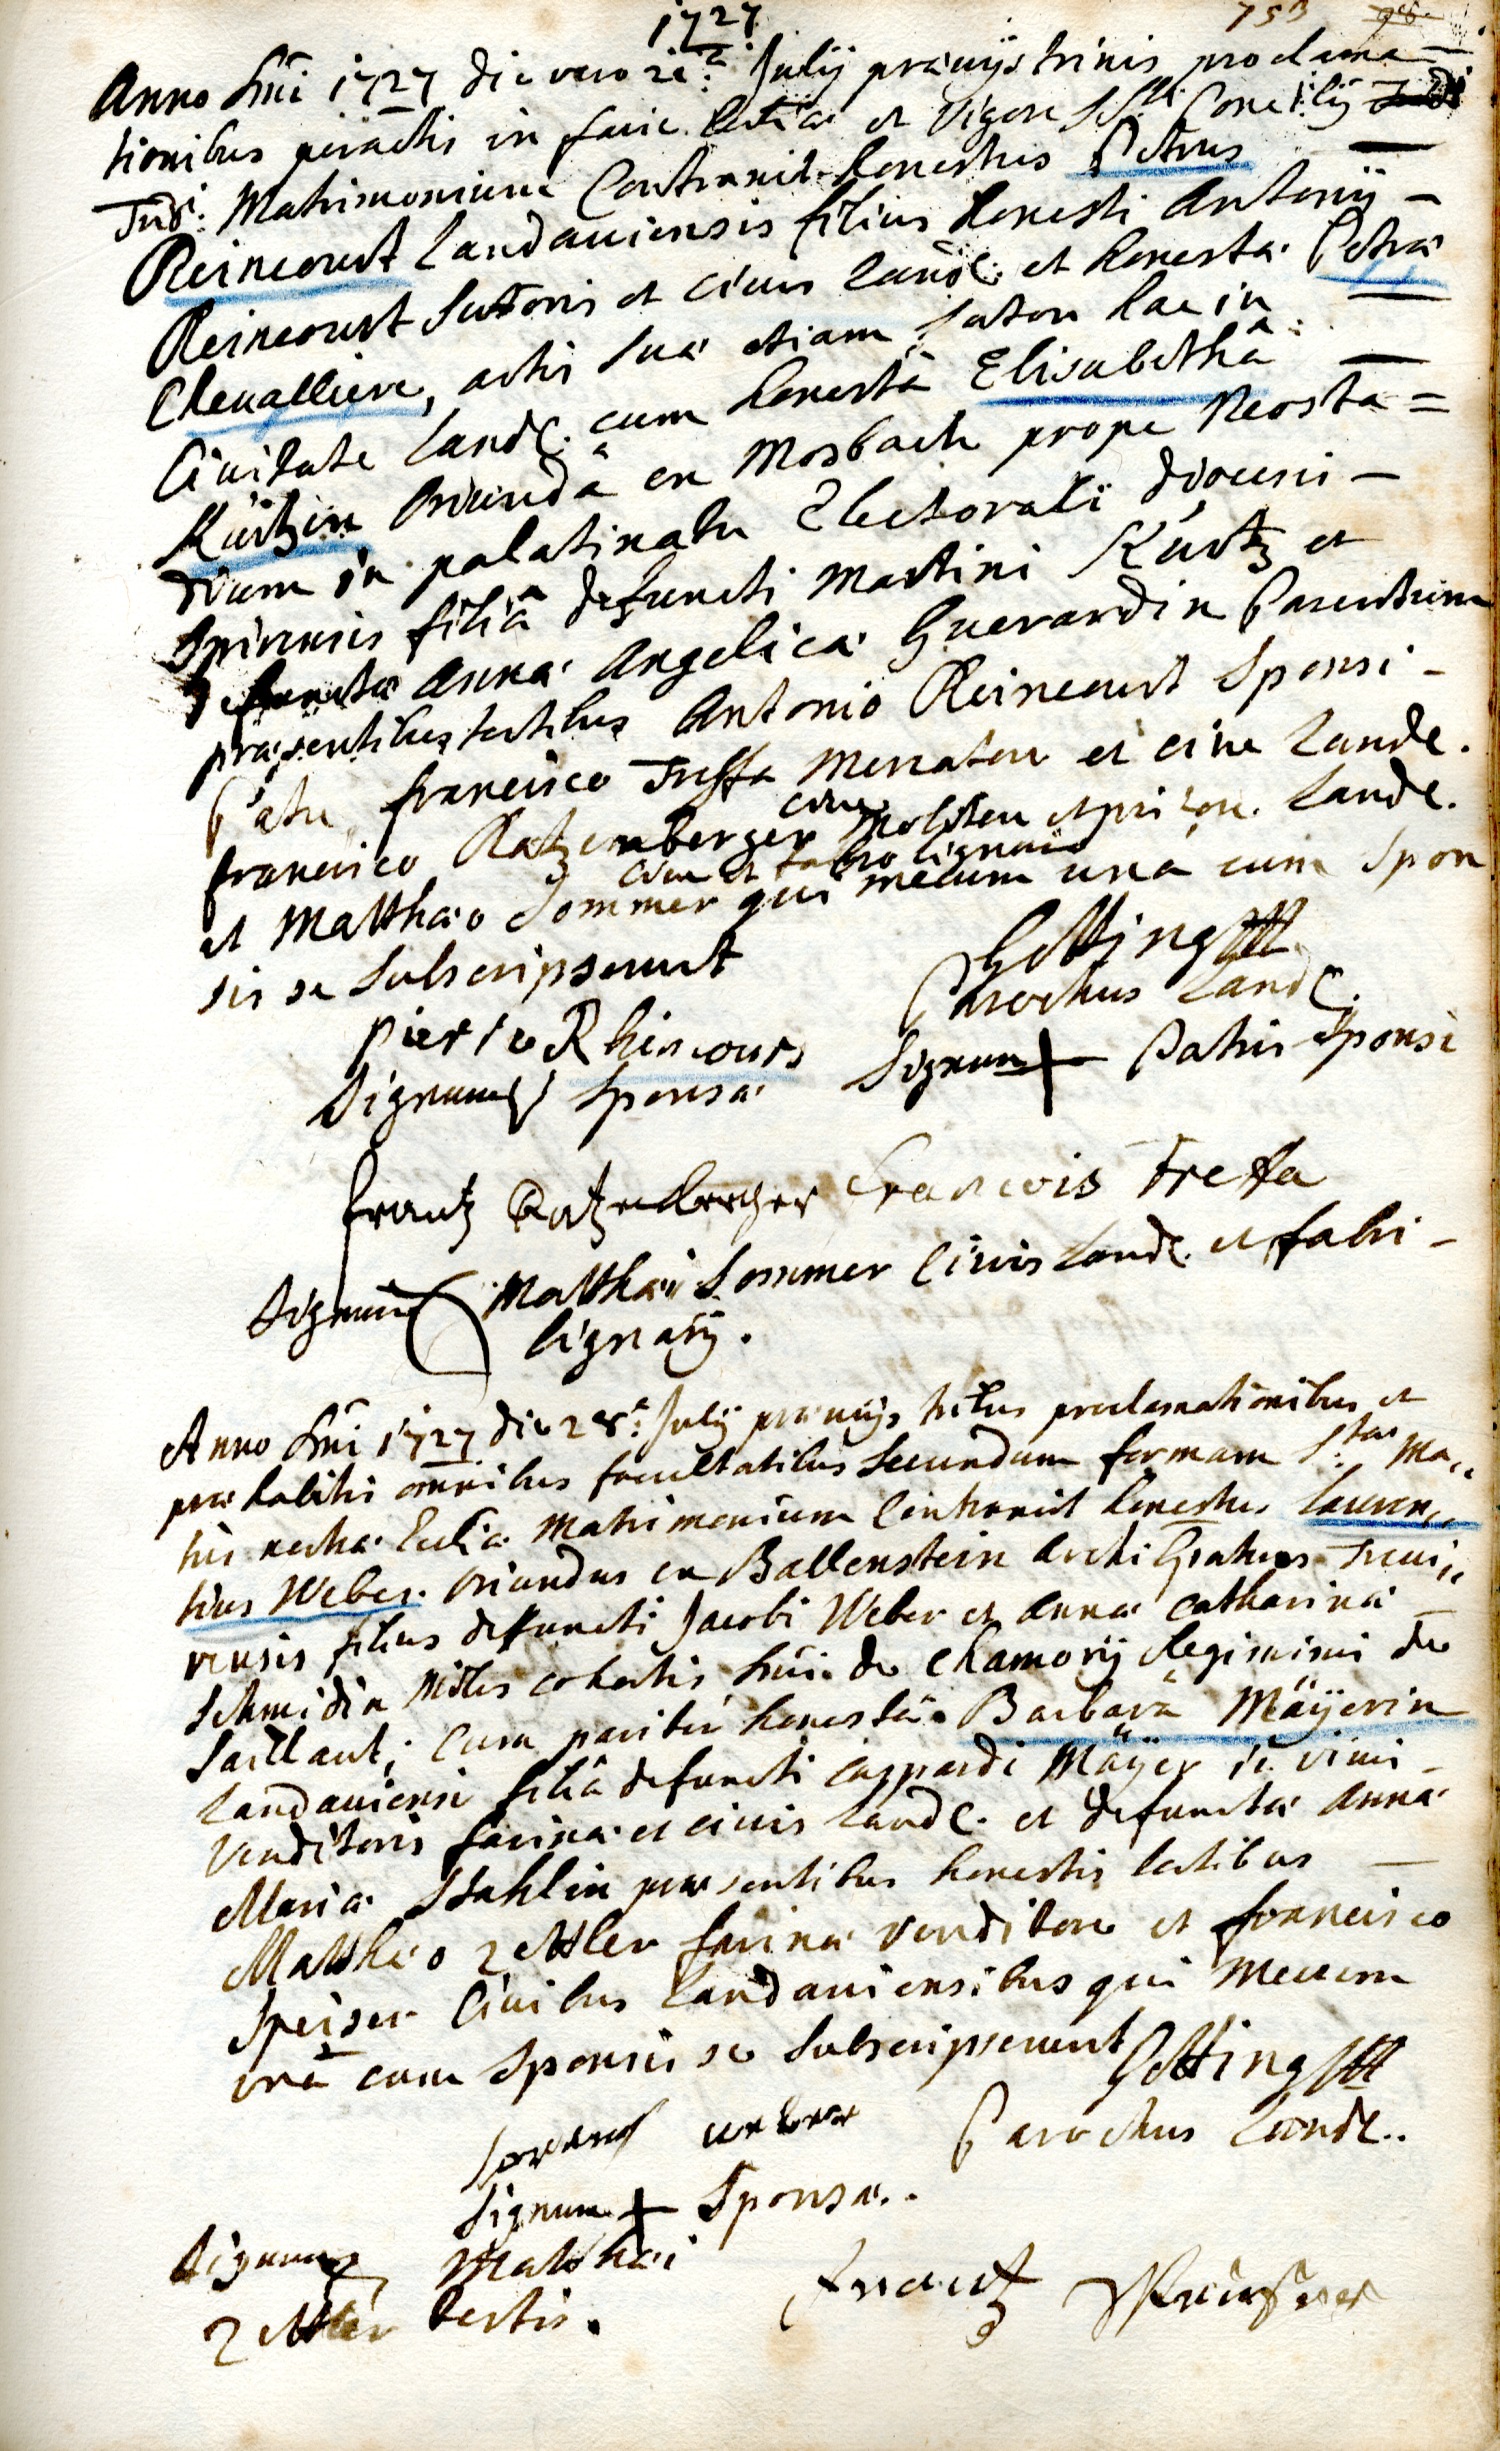 1727
Anno Dñi 1727 die vero Julij præuijs trinis proclama-
tionibus peractis in facie et Vigore Concilij
Trid: Matrimonium Contraxit honestus Petrus
Reincourt Landauiensis filius honesti Antonij -
Reincourt Sutoris et ciuis Land. et honesta Petra
Cheuallier, artis sua etiam Sutor hac in
Ciuitate Land. cum honestâ Elisabethâ
Kürtzin Oriundâ ex Mosbach prope Neosta=
dium in palatinatu Electorali diœcesis -
Spirensis filiâ defuncti Martini Kürtz et
defuncta Anna Angelica Guerardin Parentum
præsentibus testibus Antonio Reincourt Sponsi -
Patre, Francisco Treffa Mercatore et ciue Lande.
Francisco Ratzenberger ciue Molitore Lande.
ciue et fabro lignario
et Matthæo Sommer qui mecum una cum Spon
sis se Subscripserunt
Götting
Parochus Land.
pierre Rhincours Signum + Patris Sponsi
Signum Sponsa
frantz Ratzenberger Francois Treffa
Signum Matthæi Sommer Ciuis Land. et fabri -
lignarij.
Anno Dñi 1727 die 28: Julij præuijs tribus proclamationibus et
præhabitis omnibus facultatibus Secundum formam S:tae Ma,,
tris nostra Matrimonium Contraxit honestus Lauren,,
tius Weber. Oriundus ex Ballenstein Archi Treui,,
rensis filius defuncti Jacobi Weber et Anna Catharina
Schmidin Miles cohortis Dñi de Chamorij Regiminis de
Saillant, Cum pariter honestâ Barbarâ Mäÿerin
Landauiensi filiâ defuncti Caspardi Mäÿer
Venditoris farina et ciuis Land. et defuncta Anna
Maria Stahlin præsentibus honestis testibus
Matthæo Zettler farina Venditore et Francisco
Speiser Ciuibus Landauiensibus qui Mecum
unâ cum Sponsis se Subscripserunt Götting
Parochus Land.
weber
Signum + Sponsa.
Signum Matthæi
Zettler testis. Frantz